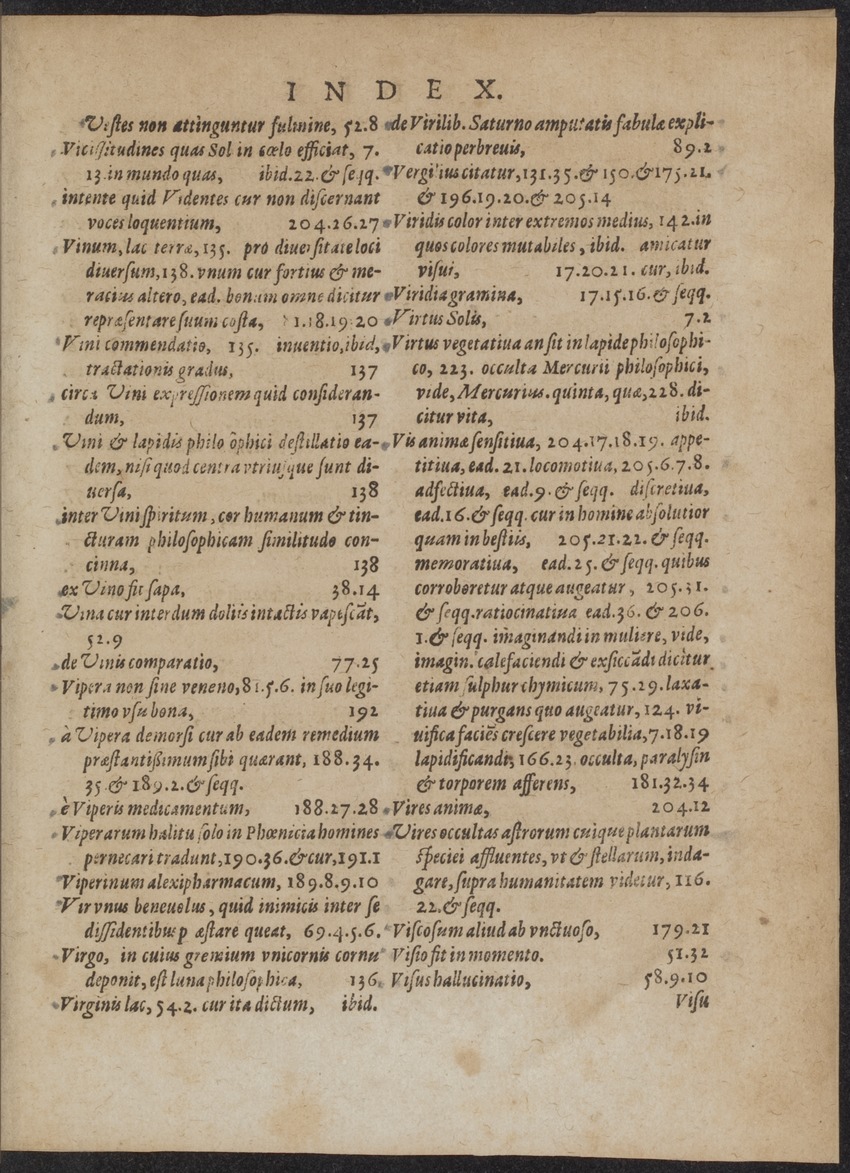 INDEX.
Vestes non attinguntur fulmine, 52.8
Vicissitudines quas Sol in cœlo efficiat, 7.
13. in mundo quas, ibid. 22. & seqq.
intente quid Videntes cur non discernant
voces loquentium, 204.26.27
Vinum, lac terræ, 135. pro diuersitate loci
diuersum, 138. vnum cur fortius & me-
racius altero, ead. bonum omne dicitur
repræsentare suum costa, 1.18.19.20
Vini commendatio, 135. inuentio, ibid,
tractationis gradus, 137
circa Vini expressionem quid consideran-
dum, 137
Vini & lapidis philosophici destillatio ea-
dem, nisi quod centra vtriusque sunt di-
uersa, 138
inter Vini spiritum, cor humanum & tin-
cturam philosophicam similitudo con-
cinna, 138
ex Vino fit sapa, 38.14
Vina cur interdum doliis intactis vapescãt,
52.9
de Vinis comparatio, 77.25
Vipera non sine veneno, 81.5.6. in suo legi-
timo vsu bona, 192
à Vipera demorsi cur ab eadem remedium
præstantißimum sibi quærant, 188.34.
35. & 189.2. & seqq.
è Viperis medicamentum, 188.27.28
Viperarum halitu solo in Phœnicia homines
pernecari tradunt, 190.36. & cur, 191.1
Viperinum alexipharmacum, 189.8.9.10
Vir vnus beneuolus, quid inimicis inter se
dissidentibus p æstare queat, 69.4.5.6.
Virgo, in cuius gremium vnicornis cornu
deponit, est luna philosophica, 136
Virginis lac, 54.2. cur ita dictum, ibid.
de Virilib. Saturno amputatis fabulæ expli-
catio perbreuis, 89.2
Vergilius citatur, 131.35. & 150. & 175.21.
& 196.19.20. & 205.14
Viridis color inter extremos medius, 142. in
quos colores mutabiles, ibid. amicatur
visui, 17.20.21. cur, ibid.
Viridia gramina, 17.15.16. & seqq.
Virtus Solis, 7.2
Virtus vegetatiua an sit in lapide philosophi-
co, 223. occulta Mercurii philosophici,
vide, Mercurius. quinta, quæ, 228. di-
citur vita, ibid.
Vis animæ sensitiua, 204.17.18.19. appe-
titiua, ead. 21. locomotiua, 205.6.7.8.
adfectiua, ead. 9. & seqq. discretiua,
ead. 16. & seqq. cur in homine absolutior
quam in bestiis, 205.21.22. & seqq.
memoratiua, ead. 25. & seqq. quibus
corroboretur atque augeatur, 205.31.
& seqq. ratiocinatiua ead. 36. & 206.
1. & seqq. imaginandi in muliere, vide,
imagin. calefaciendi & exsiccãdi dicitur
etiam sulphur chymicum, 75.29. laxa-
tiua & purgans quo augeatur, 124. vi-
uifica faciẽs crescere vegetabilia, 7.18.19
lapidificandi, 166.23. occulta, paralysin
& torporem afferens, 181.32.34
Vires animæ, 204.12
Vires occultas astrorum cuique plantarum
speciei affluentes, vt & stellarum, inda-
gare, supra humanitatem videtur, 116.
22. & seqq.
Viscosum aliud ab vnctuoso, 179.21
Visio fit in momento. 51.32
Visus hallucinatio, 58.9.10
Visu